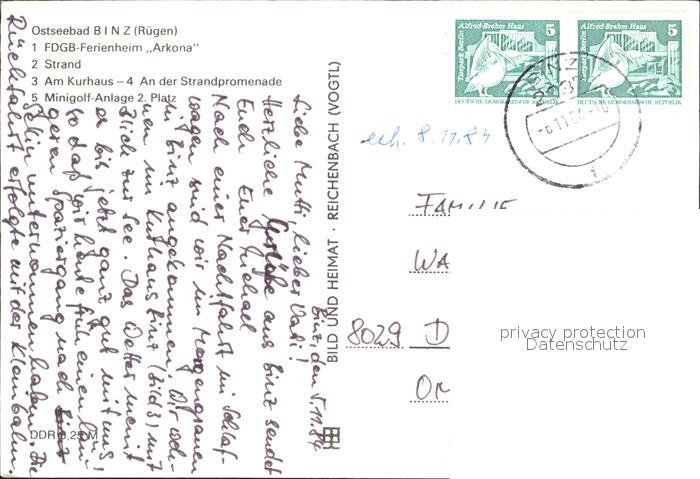 Ostseebad B I N Z (Rügen)
1 FDGB-Ferienheim „Arkona"
2 Strand
3 Am Kurhaus – 4 An der Strandpromenade
5 Minigolf-Anlage 2. Platz
DDR 0,25 M
BILD UND HEIMAT · REICHENBACH (VOGTL)
Alfred-Brehm-Haus 5
Tierpark Berlin
DEUTSCHE DEMOKRATISCHE REPUBLIK
Alfred-Brehm-Haus 5
Tierpark Berlin
DEUTSCHE DEMOKRATISCHE REPUBLIK
BINZ
erh. 8.11.84
Binz, den 5.11.84
Liebe Mutti, lieber Vati!
Herzliche Grüße aus Binz sendet
Euch Euer Michael
Nach einer Nachtfahrt im Schlaf-
wagen sind wir im Morgengrauen
in Binz angekommen. Wir woh-
nen im Kurhaus Binz (Bild 3) mit
Blick zur See. Das Wetter meint
es bis jetzt ganz gut mit uns,
so daß wir heute früh einen län-
geren Spaziergang nach
unternommen haben. Die
Rückfahrt erfolgte mit der Kleinbahn.
FAMILIE
WA
8029 D
privacy protection
Datenschutz